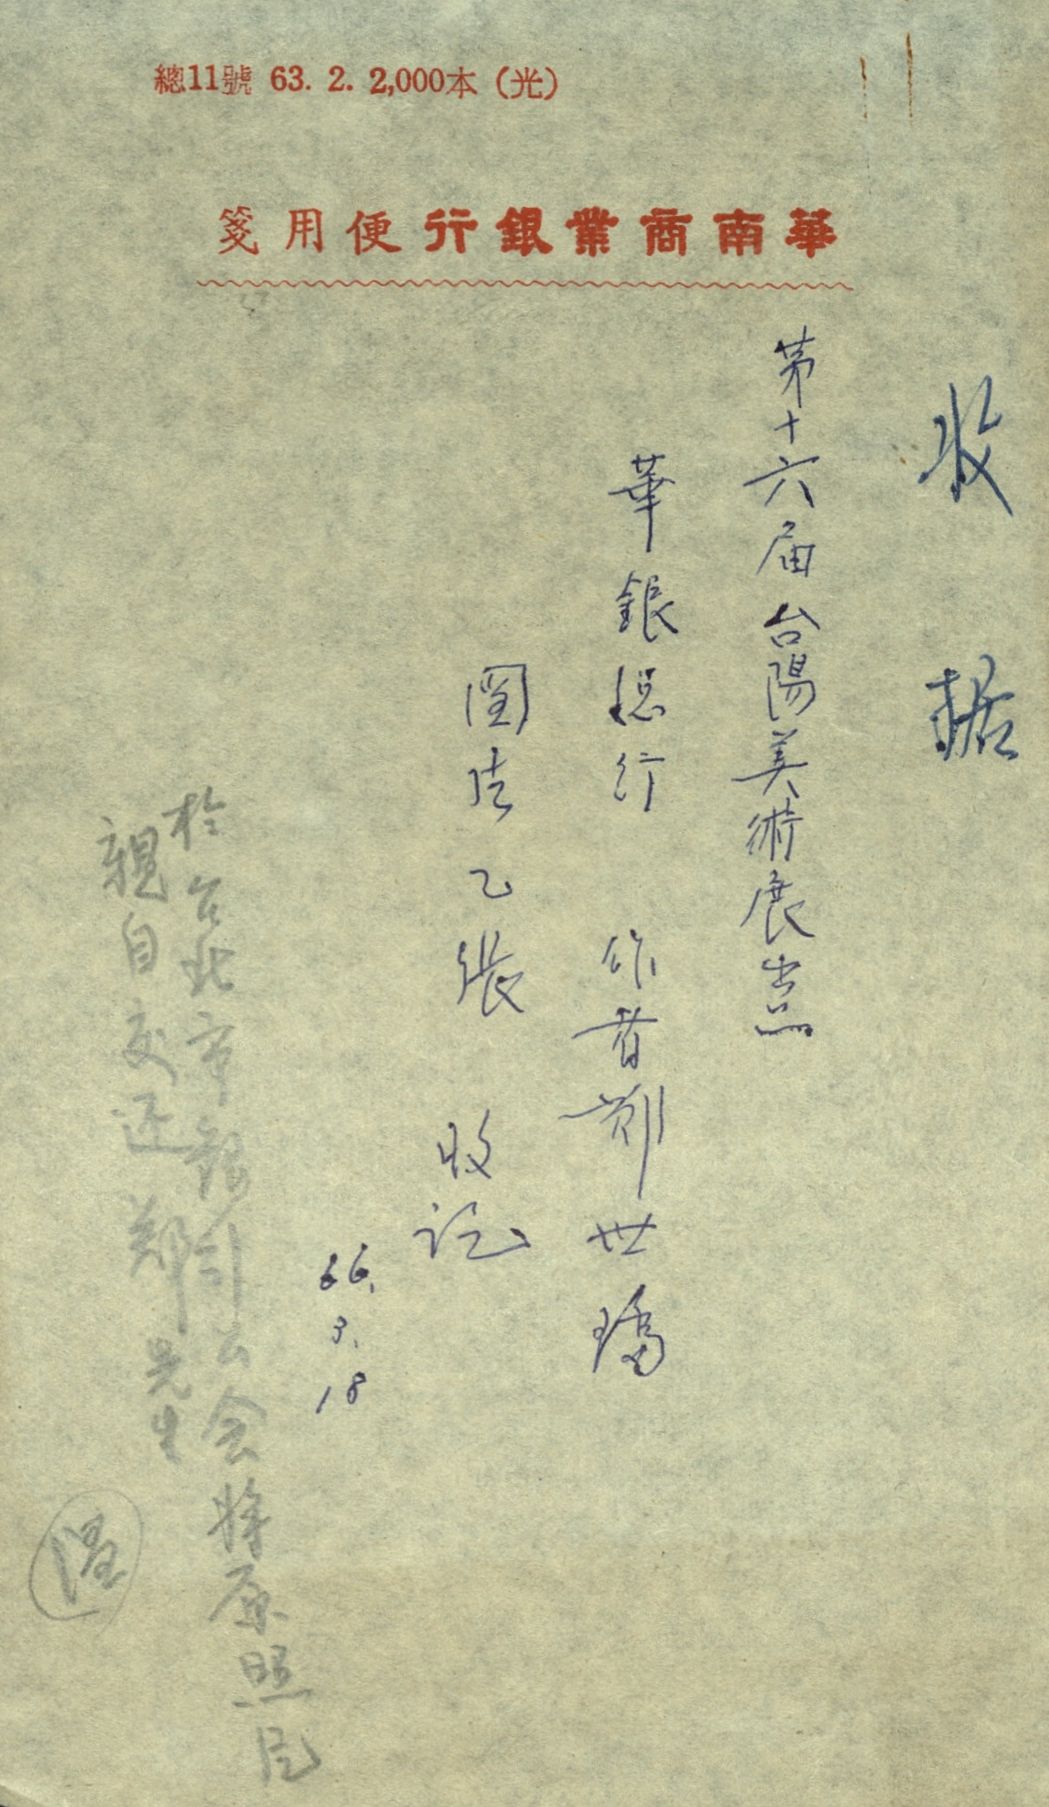 總11號 63. 2. 2,000本（光）
華南商業銀行便用箋
收據
第十六屆台陽美術展出品
華銀總行 作者鄭世璠
圖片乙張 收訖
66.3.18
於台北市銀行公会將原照片
親自交还鄭先生
溫